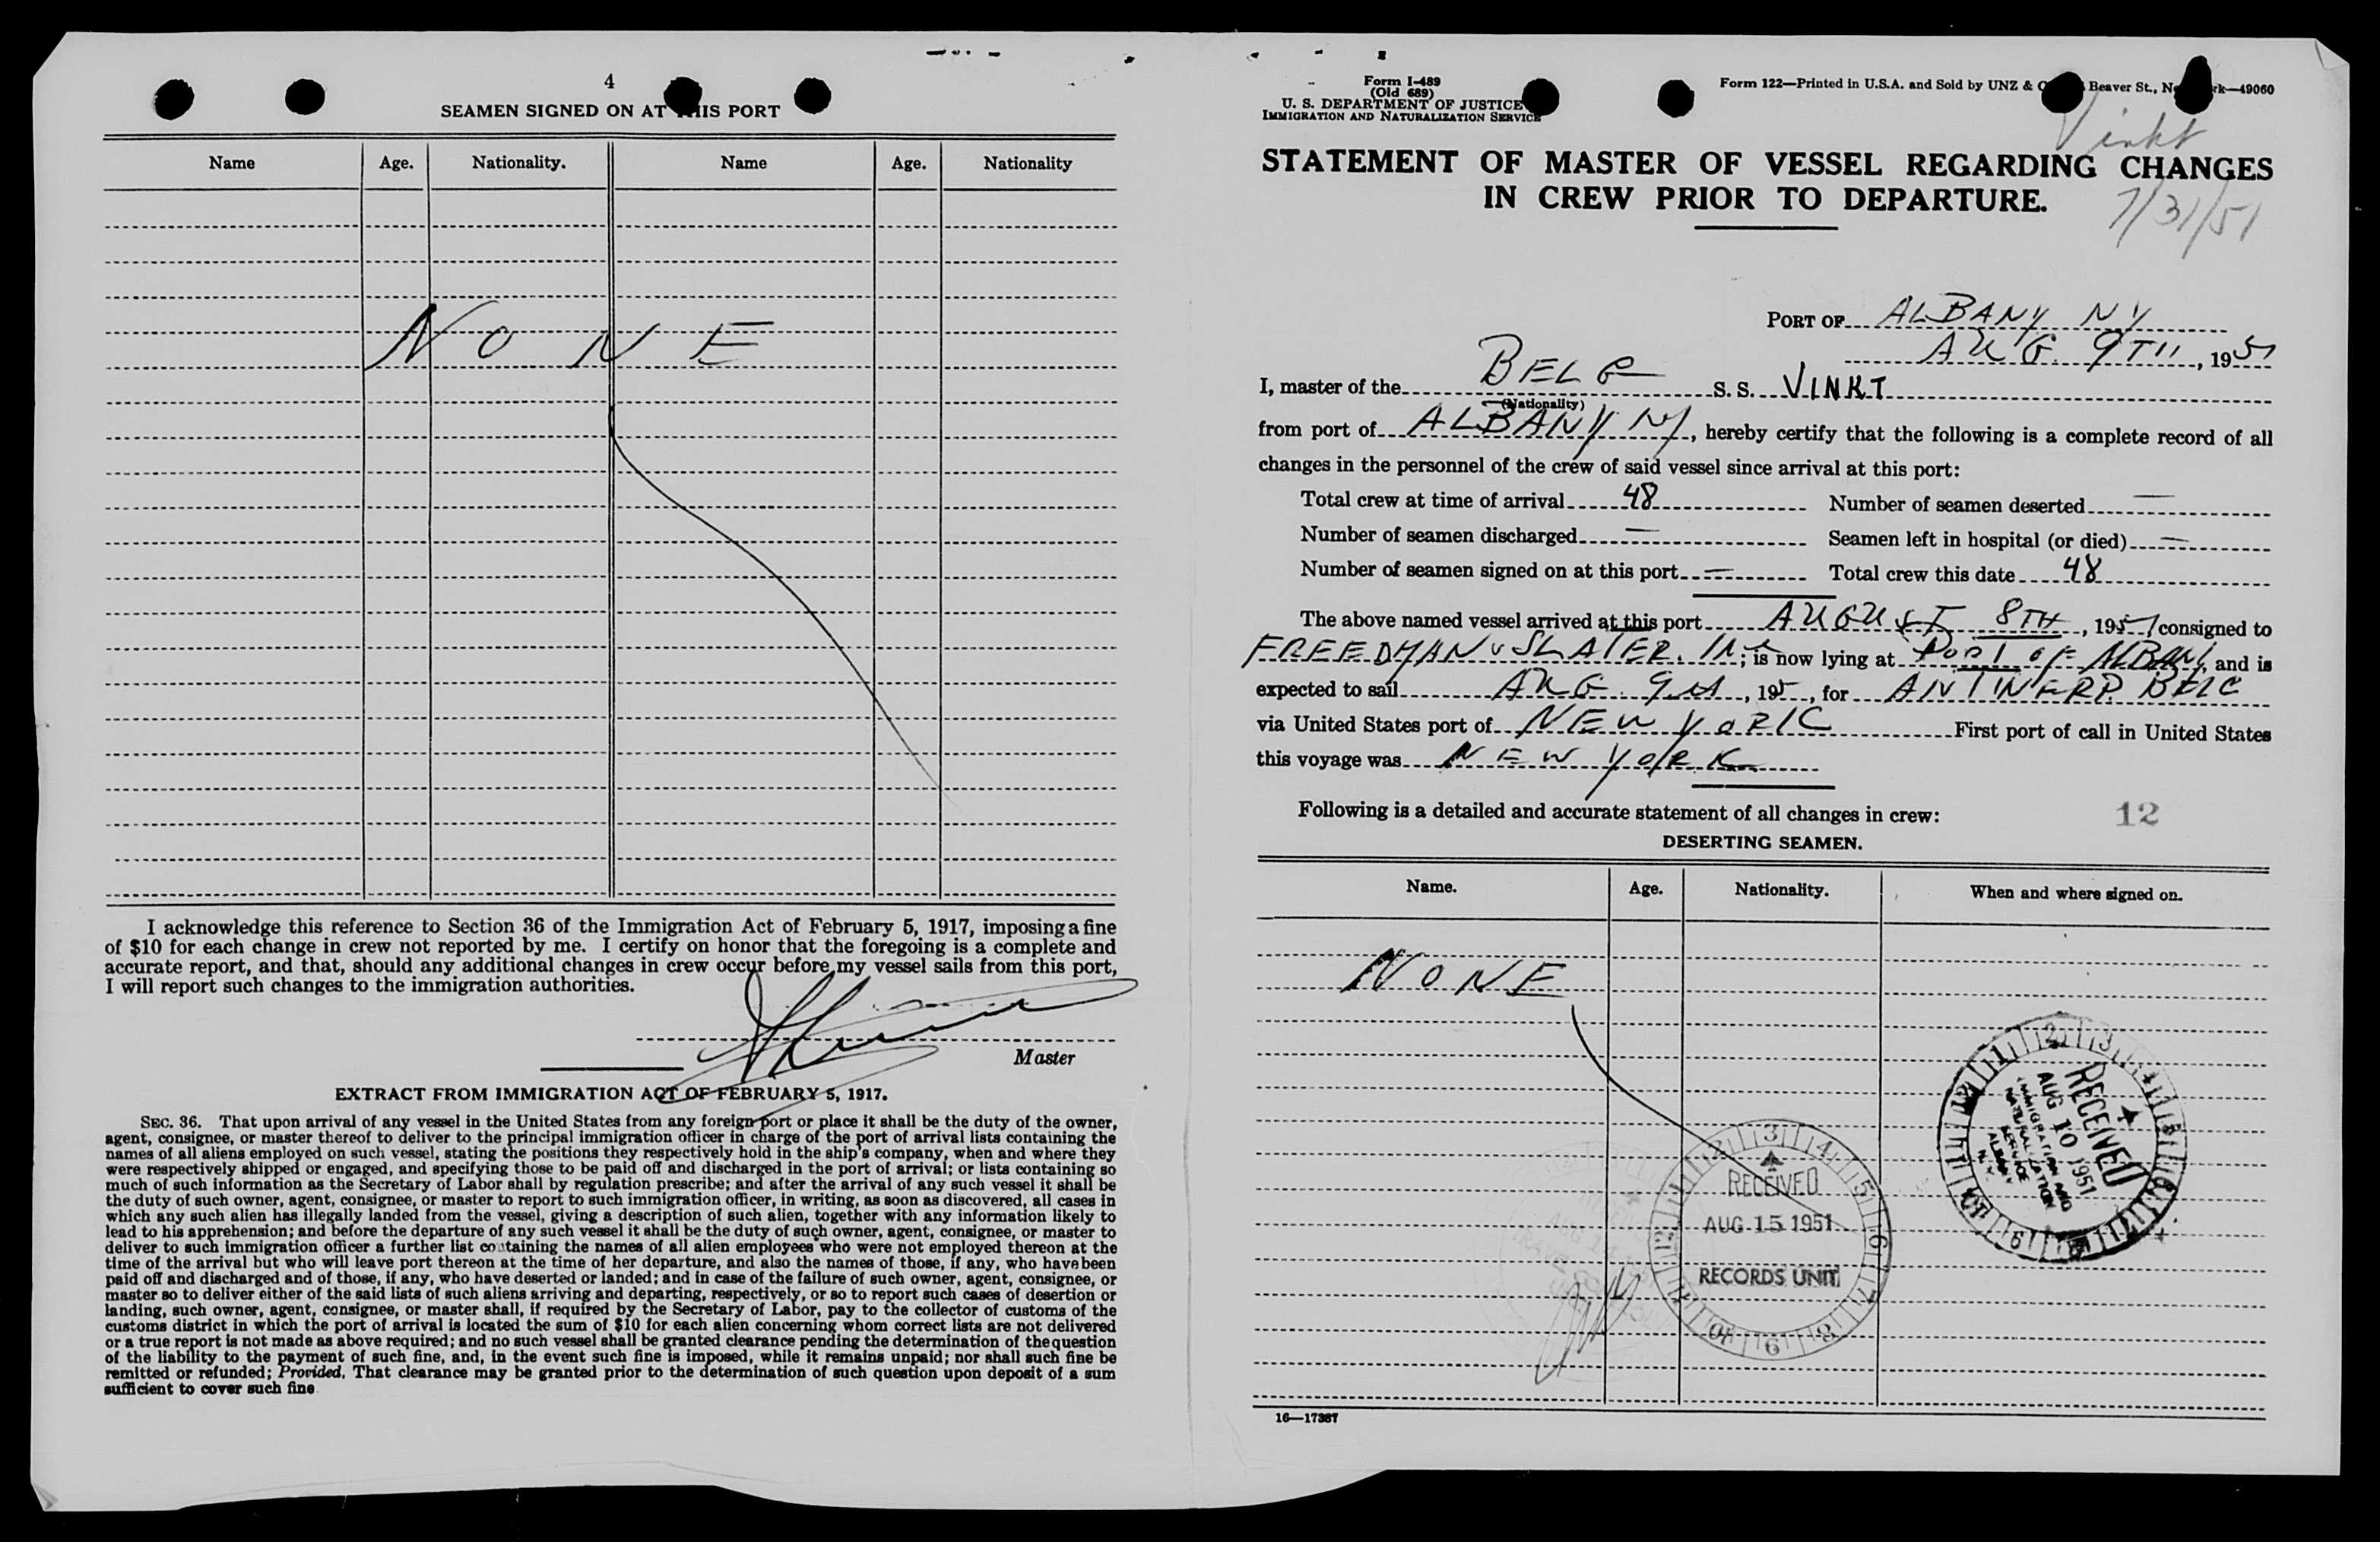 4
SEAMEN SIGNED ON AT THIS PORT
Name Age. Nationality. Name Age. Nationality
NONE
I acknowledge this reference to Section 36 of the Immigration Act of February 5, 1917, imposing a fine
of $10 for each change in crew not reported by me. I certify on honor that the foregoing is a complete and
accurate report, and that, should any additional changes in crew occur before my vessel sails from this port,
I will report such changes to the immigration authorities.
Master
EXTRACT FROM IMMIGRATION ACT OF FEBRUARY 5, 1917.
SEC. 36. That upon arrival of any vessel in the United States from any foreign port or place it shall be the duty of the owner,
agent, consignee, or master thereof to deliver to the principal immigration officer in charge of the port of arrival lists containing the
names of all aliens employed on such vessel, stating the positions they respectively hold in the ship's company, when and where they
were respectively shipped or engaged, and specifying those to be paid off and discharged in the port of arrival; or lists containing so
much of such information as the Secretary of Labor shall by regulation prescribe; and after the arrival of any such vessel it shall be
the duty of such owner, agent, consignee, or master to report to such immigration officer, in writing, as soon as discovered, all cases in
which any such alien has illegally landed from the vessel, giving a description of such alien, together with any information likely to
lead to his apprehension; and before the departure of any such vessel it shall be the duty of such owner, agent, consignee, or master to
deliver to such immigration officer a further list containing the names of all alien employees who were not employed thereon at the
time of the arrival but who will leave port thereon at the time of her departure, and also the names of those, if any, who have been
paid off and discharged and of those, if any, who have deserted or landed; and in case of the failure of such owner, agent, consignee, or
master so to deliver either of the said lists of such aliens arriving and departing, respectively, or so to report such cases of desertion or
landing, such owner, agent, consignee, or master shall, if required by the Secretary of Labor, pay to the collector of customs of the
customs district in which the port of arrival is located the sum of $10 for each alien concerning whom correct lists are not delivered
or a true report is not made as above required; and no such vessel shall be granted clearance pending the determination of the question
of the liability to the payment of such fine, and, in the event such fine is imposed, while it remains unpaid; nor shall such fine be
remitted or refunded; Provided, That clearance may be granted prior to the determination of such question upon deposit of a sum
sufficient to cover such fine.
Form I-489
(Old 689)
U. S. DEPARTMENT OF JUSTICE
IMMIGRATION AND NATURALIZATION SERVICE
Form 122—Printed in U.S.A. and Sold by UNZ & Beaver St., 49060
Vinkt
STATEMENT OF MASTER OF VESSEL REGARDING CHANGES
IN CREW PRIOR TO DEPARTURE.
7/31/51
PORT OF ALBANY NY
AUG. 9TH, 1951
I, master of the BELG S. S. VINKT
(Nationality)
from port of ALBANY NY, hereby certify that the following is a complete record of all
changes in the personnel of the crew of said vessel since arrival at this port:
Total crew at time of arrival 48 Number of seamen deserted —
Number of seamen discharged — Seamen left in hospital (or died) —
Number of seamen signed on at this port — Total crew this date 48
The above named vessel arrived at this port AUGUST 8TH, 1951 consigned to
FREEDMAN & SLATER. IN; is now lying at PORT OF ALBANY, and is
expected to sail AUG. 9TH, 195, for ANTWERP BELG
via United States port of NEW YORK First port of call in United States
this voyage was NEW YORK
Following is a detailed and accurate statement of all changes in crew:
12
DESERTING SEAMEN.
Name. Age. Nationality. When and where signed on.
NONE
RECEIVED
AUG 10 1951
IMMIGRATION AND
NATURALIZATION
SERVICE
ALBANY
N.Y.
RECEIVED
AUG 15 1951
RECORDS UNIT
16—17387